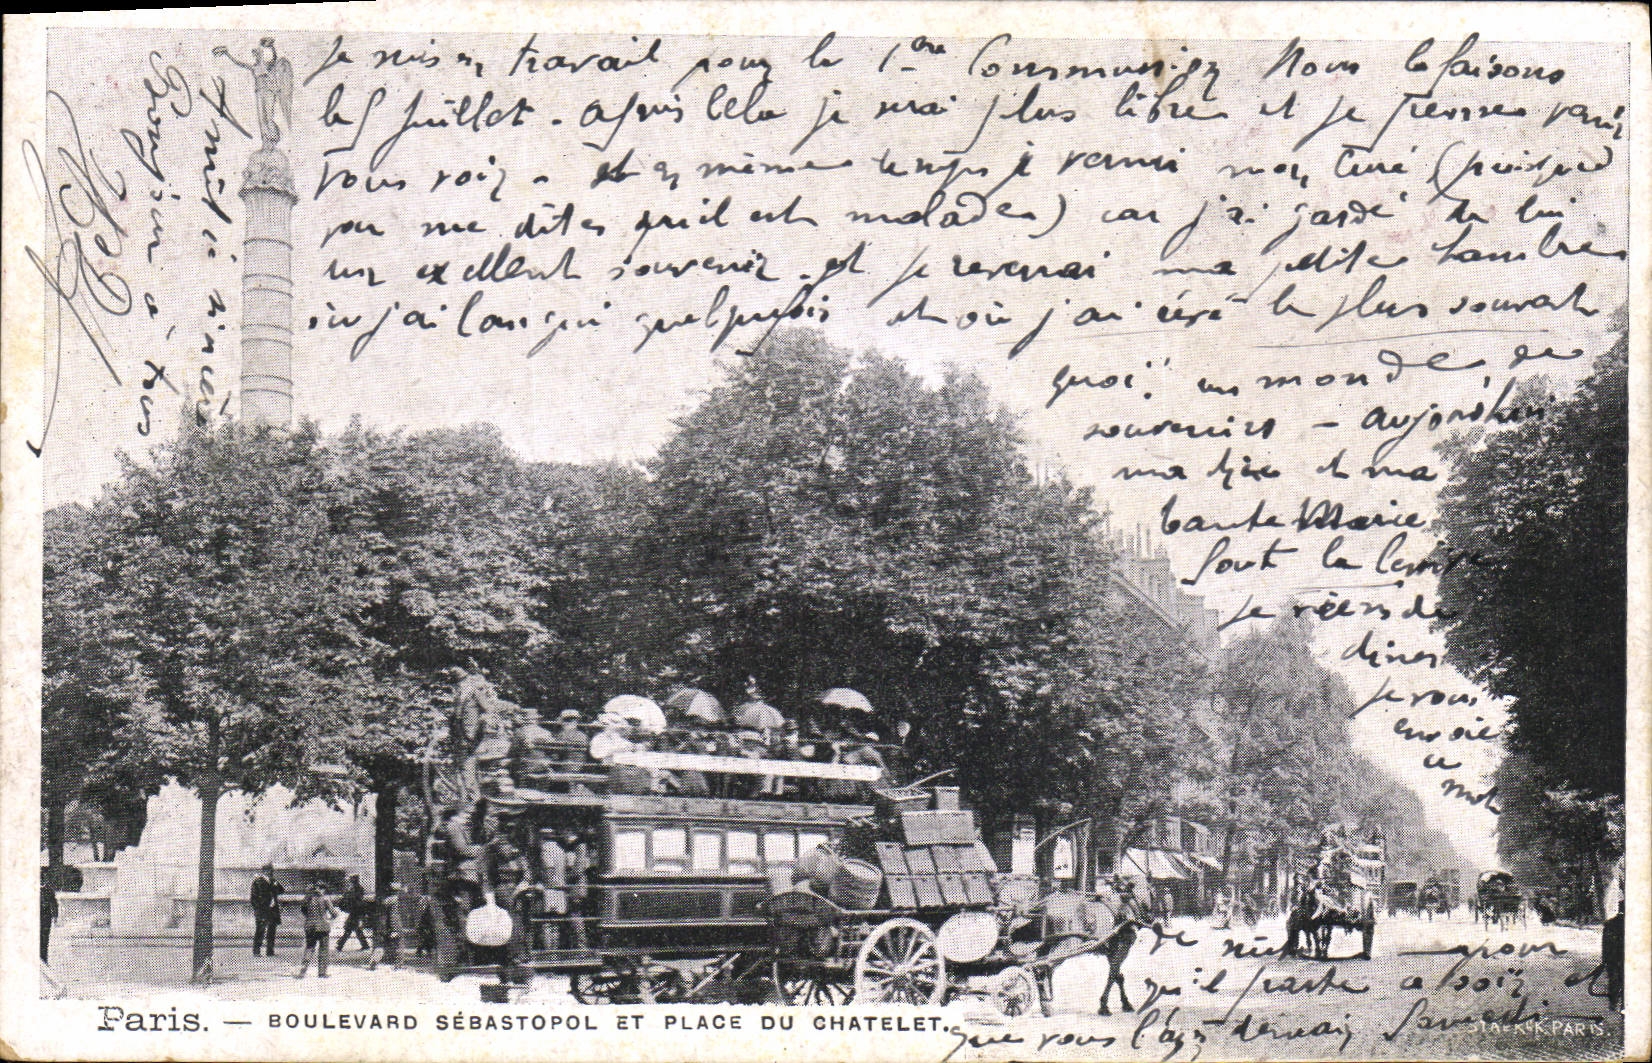 Je suis en travail pour la 1ère Communion Nous la faisons
le 5 Juillet. après cela je serai plus libre et je pense venir
vous voir. et en même temps je verrai mon Curé (puisque
vous me dites qu'il est malade) car j'ai gardé de lui
un excellent souvenir. et je reverrai ma petite chambre
où j'ai langui quelquefois et où j'ai rêvé le plus souvent
quoi! un monde de
souvenirs - aujourd'hui
ma mère et ma
tante Marie
font la lessive
Je viens de
diner
Je vous
envoie
ce
mot
de suite pour
qu'il parte ce soir et
que vous l'ayez demain Samedi
Amitié sincère
Bonjour à tous
Paris. — BOULEVARD SÉBASTOPOL ET PLACE DU CHATELET.
PARIS.